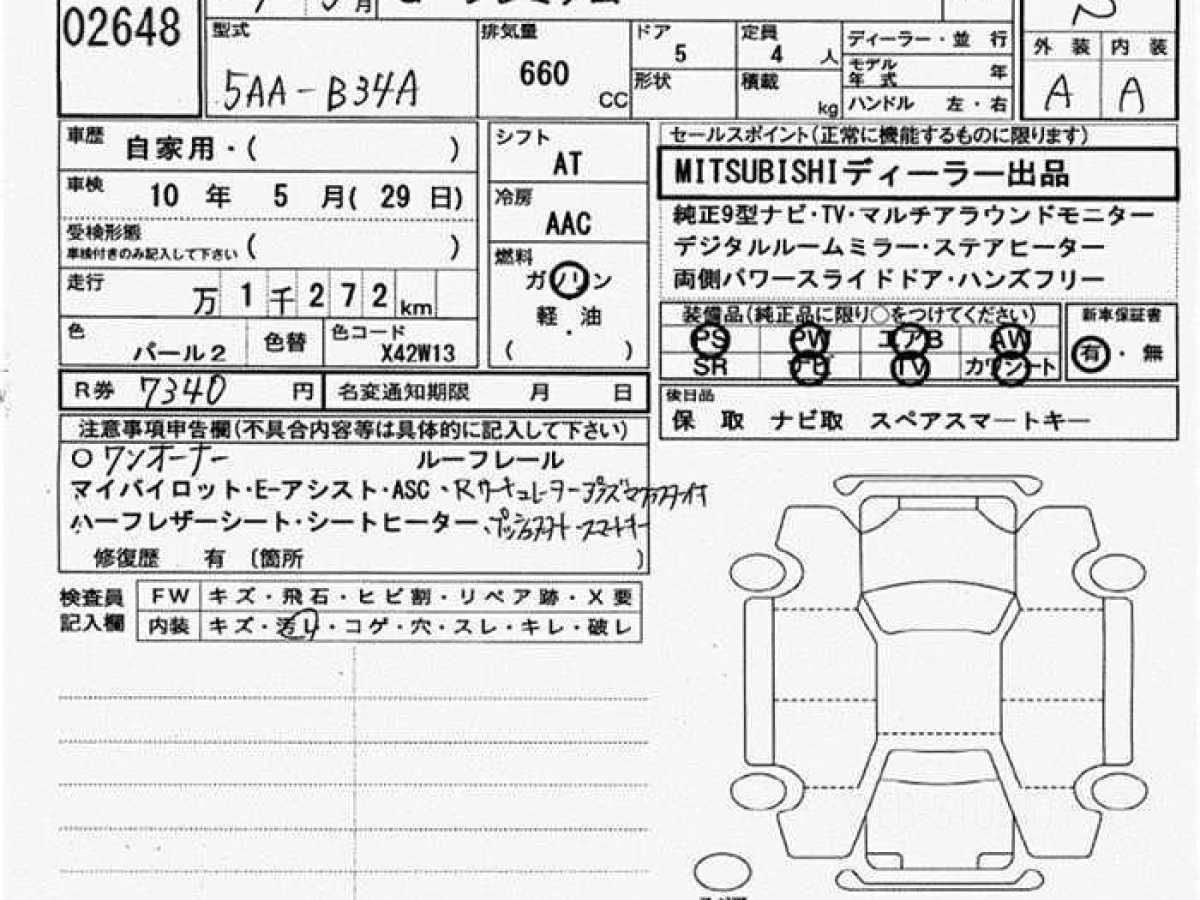 02648
月
型式
5AA-B34A
排気量
660
CC
ドア
5
形状
定員
4 人
積載
kg
ディーラー・並 行
モデル年式 年
ハンドル 左・右
S
外 装 内 装
A A
車歴
自家用・( )
車検
10 年 5 月( 29 日)
受検形態
車検付きのみ記入して下さい ( )
走行
万 1 千 2 7 2 km
色
パール2
色替
色コード
X42W13
シフト
AT
冷房
AAC
燃料
ガソリン
軽・油
( )
セールスポイント(正常に機能するものに限ります)
MITSUBISHIディーラー出品
純正9型ナビ・TV・マルチアラウンドモニター
デジタルルームミラー・ステアヒーター
両側パワースライドドア・ハンズフリー
装備品(純正品に限り○をつけてください)
PS PW エアB AW
SR ナビ TV カワシート
新車保証書
有・無
R券 7340 円
名変通知期限 月 日
後日品
保 取 ナビ取 スペアスマートキー
注意事項申告欄(不具合内容等は具体的に記入して下さい)
○ワンオーナー ルーフレール
マイパイロット・E-アシスト・ASC・Rサーキュレーター
ハーフレザーシート・シートヒーター・プッシュスタート スマートキー
修復歴 有 (箇所 )
検査員記入欄
FW キズ・飛石・ヒビ割・リペア跡・X要
内装 キズ・汚レ・コゲ・穴・スレ・キレ・破レ